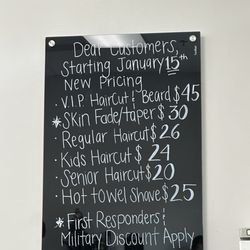 Dear Customers,
Starting January 15th
New Pricing
· V.I.P Haircut & Beard $45
* Skin Fade/Taper $30
· Regular Haircut $26
· Kids Haircut $24
· Senior Haircut $20
· Hot Towel Shave $25
* First Responders &
Military Discount Apply